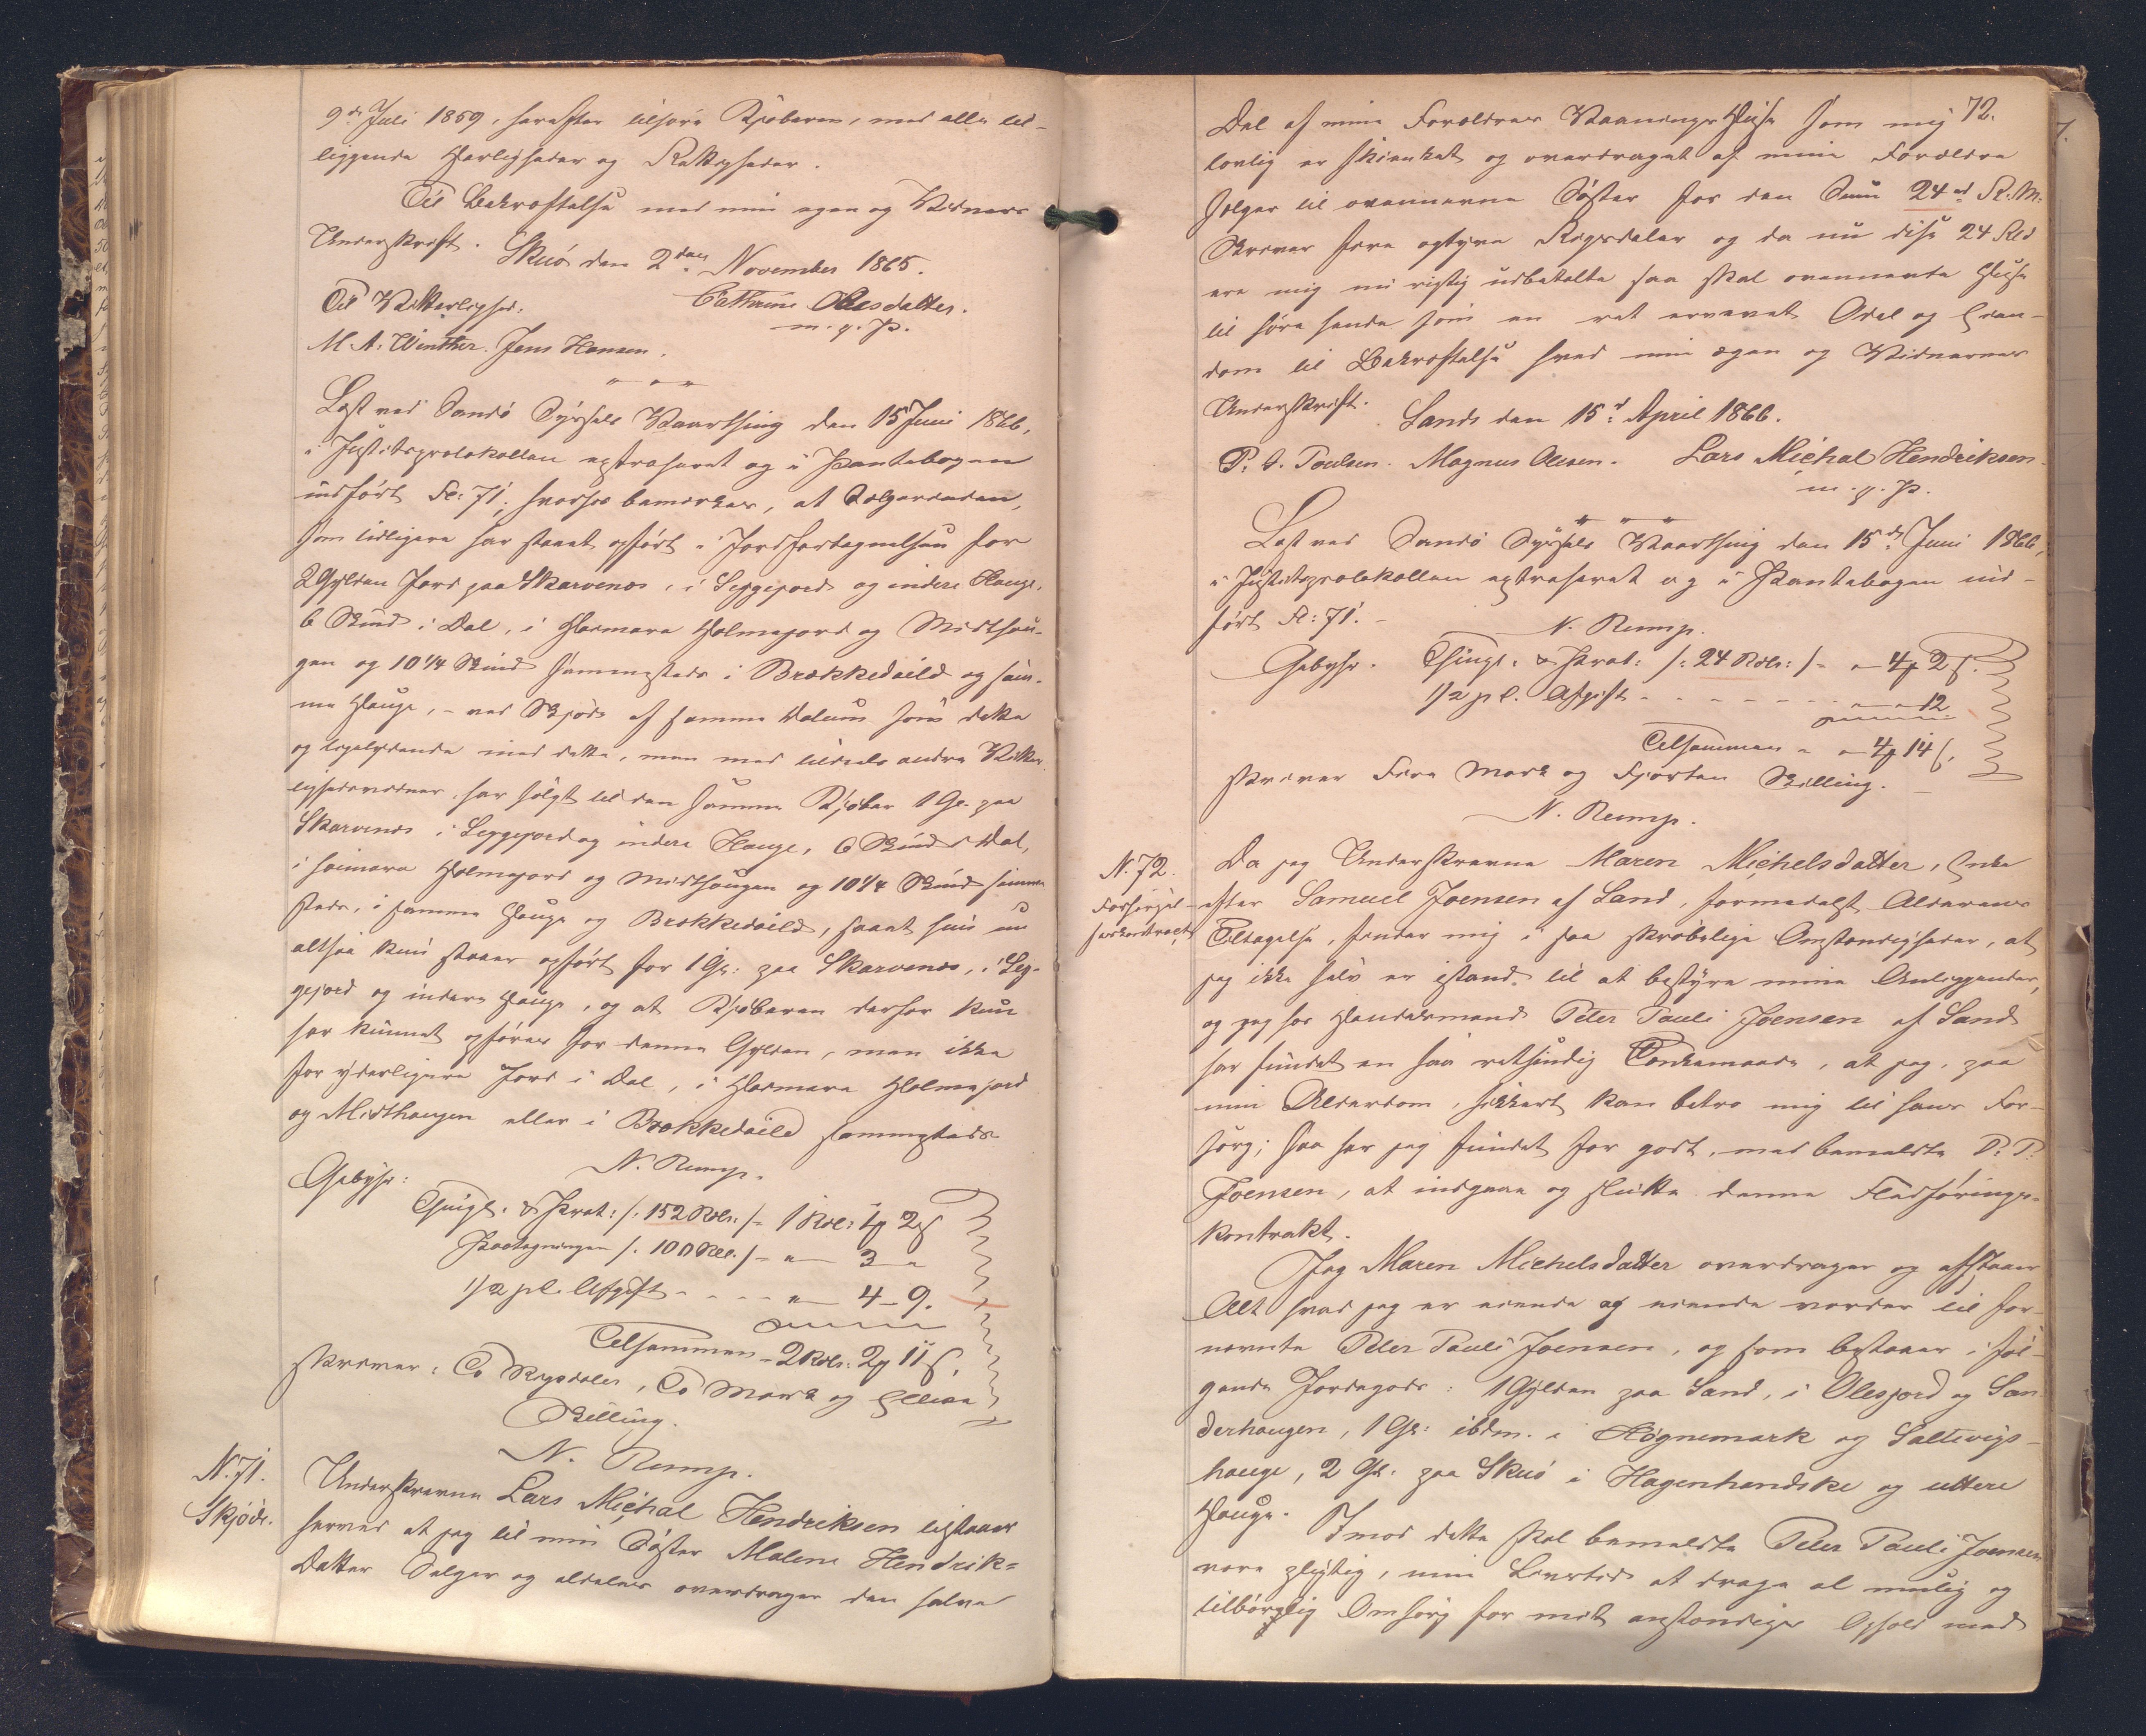 9de Juli 1859, herefter tilhøre Kjøberen, med alle til-
liggende Herligheder og Rettigheder.
Til Bekræftelse med min egen og Vidners
Underskrift. Skuø den 2den November 1865.
Til Vitterlighed. Cathrine Olesdatter.
m. p. P.
M. A. Winther. Jens Hansen.
Læst ved Sandø Syssels Vaarthing den 15 Juni 1866,
i Justitsprotokollen extraheret og i Pantebogen
indført Fol: 71, hvorhos bemærkes, at Sælgerinden,
som tidligere har staaet opført i Jordfortegnelsen for
2 Gylden Jord paa Skarvenes, i Leggejord og indere Hauge,
6 Skind i Dal, i Heimara Holmejord og Midthau-
gen og 10 1/4 Skind sammesteds i Brekkedeild og sam-
me Hauge, - ved Skjøde af samme Datum som dette
og ligelydende med dette, men med tildeels andre Vitter-
lighedsvidner, har solgt til den samme Kjøber 1 Gl. paa
Skarvenes i Leggejord og indere Hauge, 6 Skind i Dal,
i Heimara Holmejord og Midthaugen og 10 1/4 Skind samme-
steds, i samme Hauge og Brekkedeild, saaat hun nu
altsaa kun staaer opført for 1 Gl: paa Skarvenes, i Leg-
gejord og indere Hauge, og at Kjøberen derfor kun
har kunnet opføres for denne Gylden, men ikke
for yderligere Jord i Dal, i Heimara Holmejord
og Midthaugen eller i Brekkedeild sammesteds
N. Rump.
Gebyhr:
Thingl. & Prot: /: 152 Rdlr: /= 1 Rdl: 1 p 2 ß
Paategningen /: 100 Rdl. /- " - 3 - "
1/2 pC. Afgift - - - - " - 4 - 9.
Tilsammen - 2 Rdlr: 2 p 11 ß.
skriver: To Rigsdaler, To Mark og Elleve
Skilling.
N. Rump.
N. 71.
Skjøde.
Underskrevne Lars Michal Hendriksen tilstaaer
herved at jeg til min Søster Malene Hendrik-
datter Sælger og aldeles overdrager den halve
72.
Del af mine Foreldres Vaanings Huse som mig
lovlig er skienket og overdraget af mine Foreldre
sælger til ovennevne Søster for den Sum 24 rd R. M.
Skrever fire ogtyve Rigsdaler og da nu disse 24 Rd
ere mig nu rigtig udbetalte saa skal ovennevnte Huse
til høre hende som en ret ervervet Odel og Eien-
dom til Bekræftelse hved min egen og Vidnernes
Underskrift.
Sands den 15d April 1866.
P. J. Poulsen. Magnus Olesen. Lars Michal Hendriksen
m. p. P.
Læst ved Sandø Syssels Vaarthing den 15de Juni 1866,
i Justitsprotokollen extraheret og i Pantebogen ind-
ført Fol: 71. -
N. Rump.
Gebyhr. Thingl. & Prot: /: 24 Rdlr: /- " - 4 p 2 ß.
1/2 pC. Afgift - - - - - - - - 12
Tilsammen - " - 4 p 14 ß,
skriver Fire Mark og Fjorten Skilling.
N. Rump.
N. 72.
Forsørgel-
seskontract
Da jeg Underskrevne Maren Michelsdatter, Enke
efter Samuel Joensen af Sand, formedelst Alderens
Tiltagelse, finder mig i saa skrøbelige Omstændigheder, at
jeg ikke selv er istand til at bestyre mine Anliggender,
og jeg hos Handelsmand Peter Pauli Joensen af Sand
har fundet en saa retsindig Tænkemaade, at jeg, paa
min Alderdom, sikkert kan betro mig til hans For-
sorg; saa har jeg fundet for godt, med bemeldte P. P.
Joensen, at indgaae og slutte denne Fledførings-
kontrakt.
Jeg Maren Michelsdatter overdrager og afstaaer
Alt hvad jeg er eiende og eiende vorder til for-
nevnte Peter Pauli Joensen, og som bestaaer i føl-
gende Jordegods: 1 Gylden paa Sand, i Olesjord og San-
derhaugen, 1 Gl: ibdm. i Høgnemark og Saltvigs-
hauge, 2 Gl: paa Skuø i Hagenhendske og uttere
Hauge. Imod dette skal bemeldte Peter Pauli Joensen
være pligtig, min Livstid at drage al mulig og
tilbørlig Omsorg for mit anstændige Ophold med